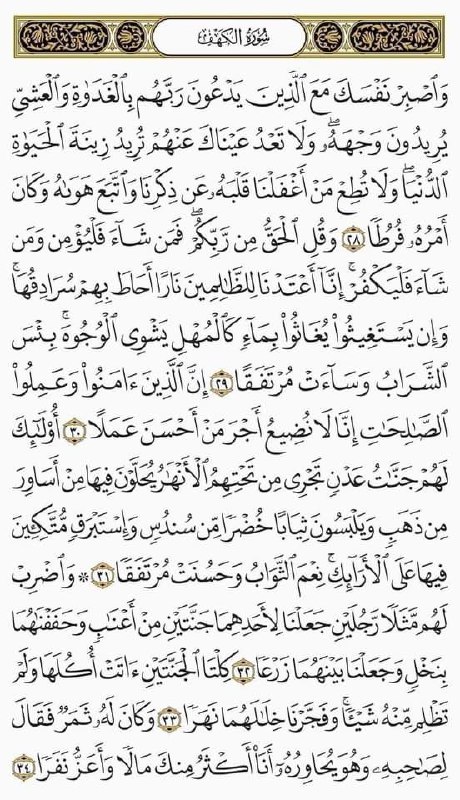 سُورَةُ الكَهْفِ
وَٱصْبِرْ نَفْسَكَ مَعَ ٱلَّذِينَ يَدْعُونَ رَبَّهُم بِٱلْغَدَوٰةِ وَٱلْعَشِىِّ
يُرِيدُونَ وَجْهَهُۥۖ وَلَا تَعْدُ عَيْنَاكَ عَنْهُمْ تُرِيدُ زِينَةَ ٱلْحَيَوٰةِ
ٱلدُّنْيَاۖ وَلَا تُطِعْ مَنْ أَغْفَلْنَا قَلْبَهُۥ عَن ذِكْرِنَا وَٱتَّبَعَ هَوَىٰهُ وَكَانَ
أَمْرُهُۥ فُرُطًا ٢٨ وَقُلِ ٱلْحَقُّ مِن رَّبِّكُمْۖ فَمَن شَآءَ فَلْيُؤْمِن وَمَن
شَآءَ فَلْيَكْفُرْۚ إِنَّآ أَعْتَدْنَا لِلظَّـٰلِمِينَ نَارًا أَحَاطَ بِهِمْ سُرَادِقُهَاۚ
وَإِن يَسْتَغِيثُوا۟ يُغَاثُوا۟ بِمَآءٍ كَٱلْمُهْلِ يَشْوِى ٱلْوُجُوهَۚ بِئْسَ
ٱلشَّرَابُ وَسَآءَتْ مُرْتَفَقًا ٢٩ إِنَّ ٱلَّذِينَ ءَامَنُوا۟ وَعَمِلُوا۟
ٱلصَّـٰلِحَـٰتِ إِنَّا لَا نُضِيعُ أَجْرَ مَنْ أَحْسَنَ عَمَلًا ٣٠ أُو۟لَـٰٓئِكَ
لَهُمْ جَنَّـٰتُ عَدْنٍ تَجْرِى مِن تَحْتِهِمُ ٱلْأَنْهَـٰرُ يُحَلَّوْنَ فِيهَا مِنْ أَسَاوِرَ
مِن ذَهَبٍ وَيَلْبَسُونَ ثِيَابًا خُضْرًا مِّن سُندُسٍ وَإِسْتَبْرَقٍ مُّتَّكِـِٔينَ
فِيهَا عَلَى ٱلْأَرَآئِكِۚ نِعْمَ ٱلثَّوَابُ وَحَسُنَتْ مُرْتَفَقًا ٣١ ۞ وَٱضْرِبْ
لَهُم مَّثَلًا رَّجُلَيْنِ جَعَلْنَا لِأَحَدِهِمَا جَنَّتَيْنِ مِنْ أَعْنَـٰبٍ وَحَفَفْنَـٰهُمَا
بِنَخْلٍ وَجَعَلْنَا بَيْنَهُمَا زَرْعًا ٣٢ كِلْتَا ٱلْجَنَّتَيْنِ ءَاتَتْ أُكُلَهَا وَلَمْ
تَظْلِم مِّنْهُ شَيْـًٔاۚ وَفَجَّرْنَا خِلَـٰلَهُمَا نَهَرًا ٣٣ وَكَانَ لَهُۥ ثَمَرٌ فَقَالَ
لِصَـٰحِبِهِۦ وَهُوَ يُحَاوِرُهُۥٓ أَنَا۠ أَكْثَرُ مِنكَ مَالًا وَأَعَزُّ نَفَرًا ٣٤